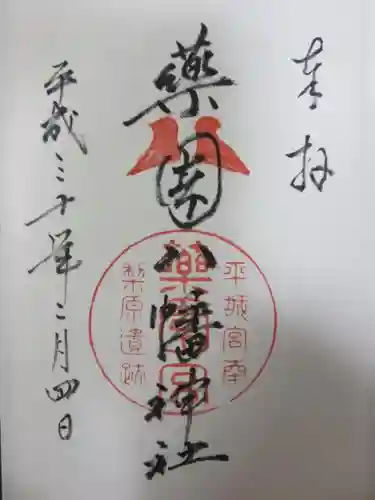 奉拝
藥園八幡神社
平城宮南
藥園宮
梨原遺跡
平成三十年二月四日